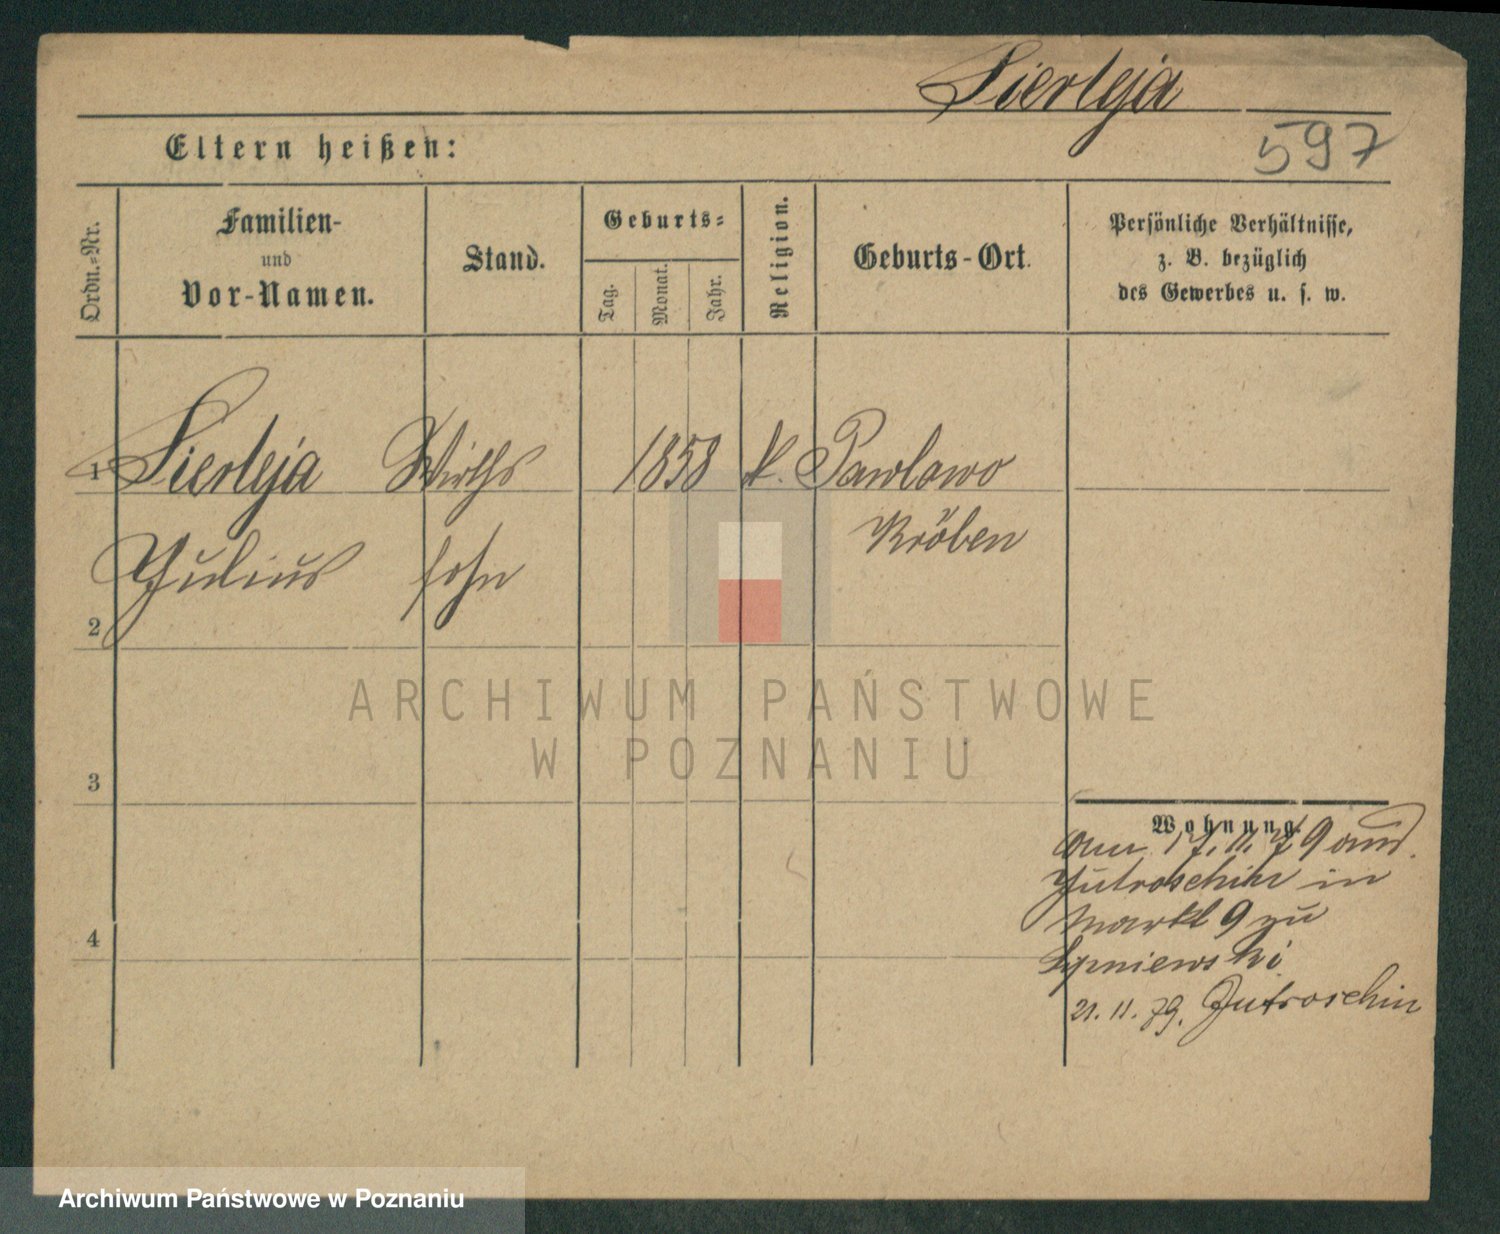 Sierleja
597
Eltern heißen:
Ordn.-Nr.
Familien-
und
Vor-Namen.
Stand.
Geburts-
Tag.
Monat.
Jahr.
Religion.
Geburts-Ort.
Persönliche Verhältnisse,
z. B. bezüglich
des Gewerbes u. s. w.
1 Sierleja Wirths 1858 k. Pawlowo
Kröben
Julius sohn
2
3
4
Wohnung.
am 17. 11. 79 aus
Jutroschin in
Markt 9 zu
21. 11. 79. Jutroschin
ARCHIWUM PAŃSTWOWE
W POZNANIU
Archiwum Państwowe w Poznaniu